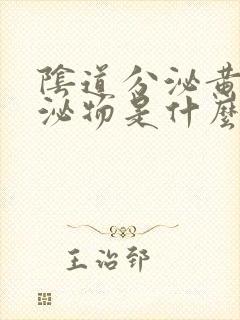 陰道分泌黃
泌物是什麼
王治郅